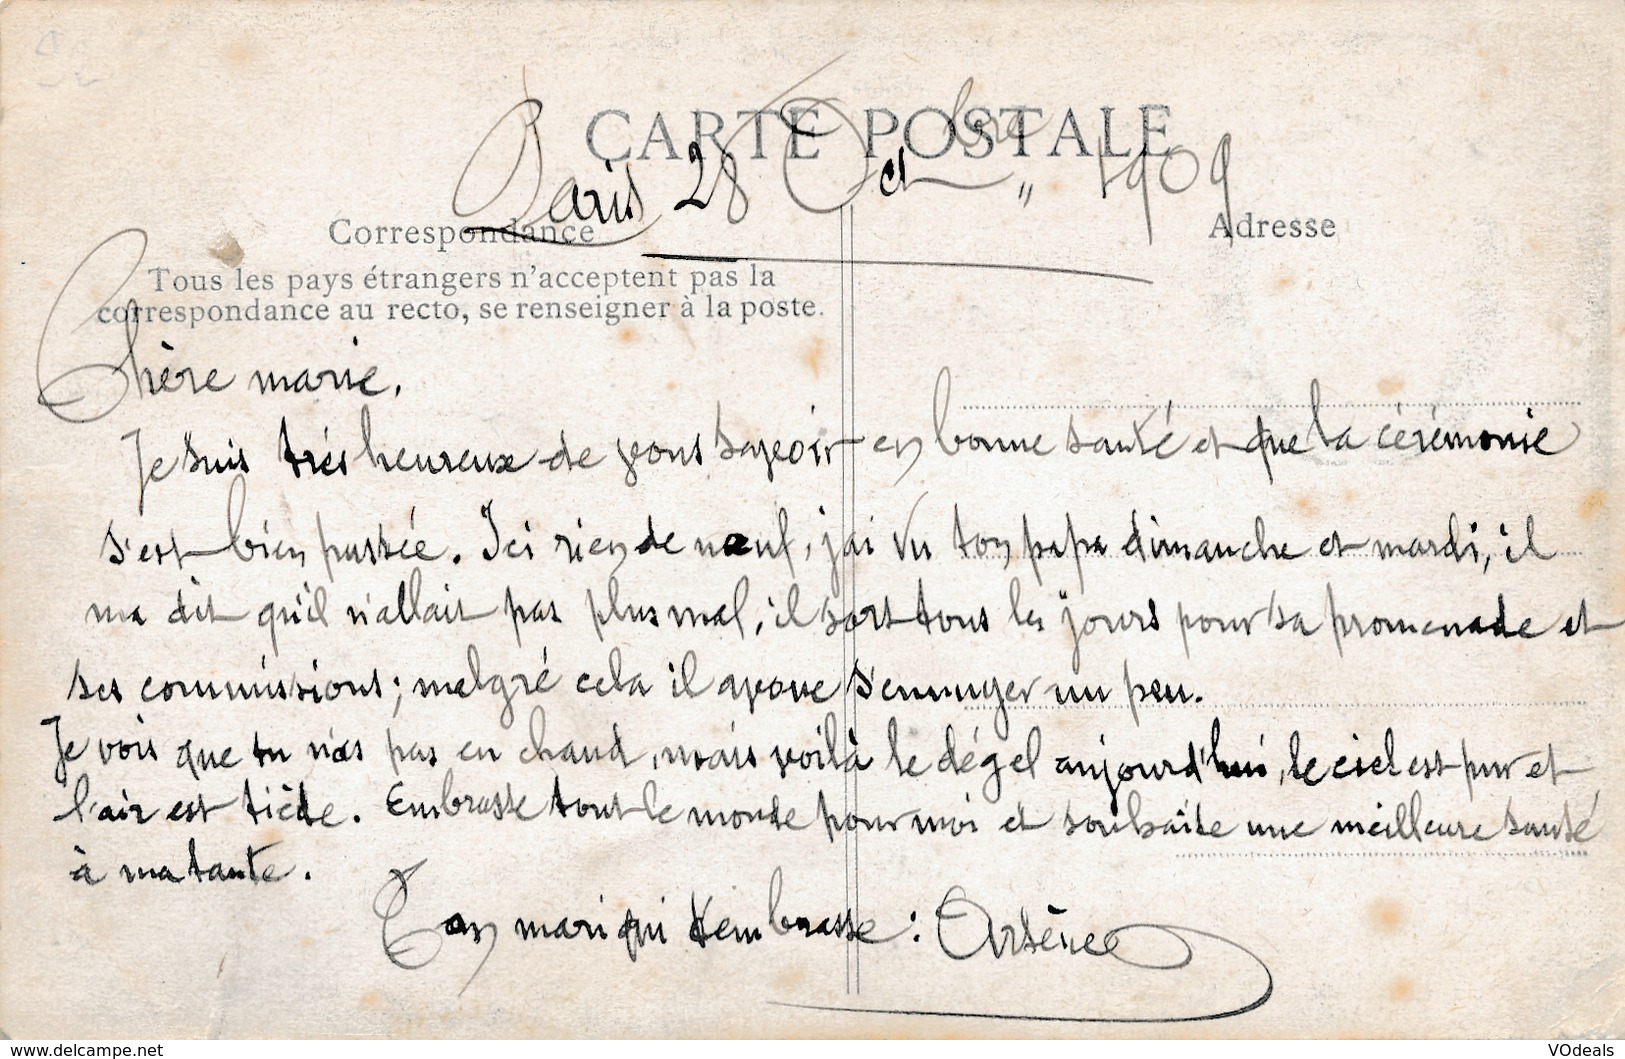 CARTE POSTALE
Paris 28 Octbre 1909
Correspondance
Adresse
Tous les pays étrangers n'acceptent pas la
correspondance au recto, se renseigner à la poste.
Chère marie.
Je suis très heureux de vous savoir en bonne santé et que la cérémonie
s'est bien passée. Ici rien de neuf, j'ai vu ton papa dimanche et mardi, il
ma dit qu'il n'allait pas plus mal, il sort tous les jours pour sa promenade et
ses commissions; malgré cela il avoue s'ennuyer un peu.
Je vois que tu n'as pas eu chaud, mais voilà le dégel aujourd'hui, le ciel est pur et
l'air est tiède. Embrasse tout le monde pour moi et souhaite une meilleure santé
à ma tante.
Ton mari qui t'embrasse : Arsène
www.delcampe.net
VOdeals